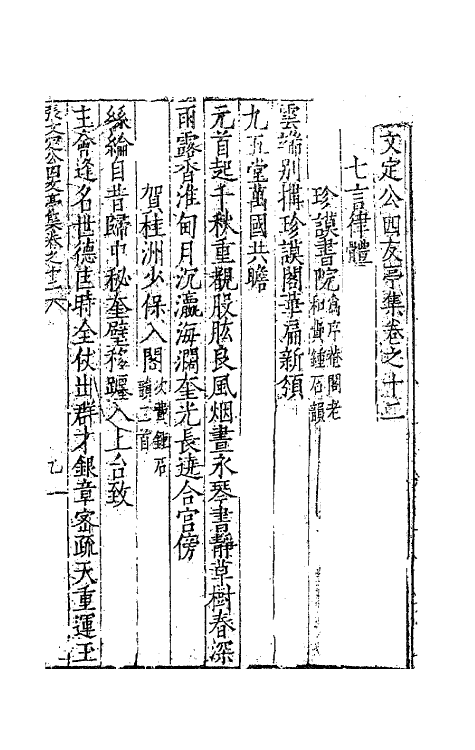 文定公四友亭集卷之十二
七言律體
珍謨書院為序菴閣老和費鍾石韻
雲端别搆珍謨閣華扁新頒
九五堂萬國共瞻
元首起千秋重觀股肱良風烟晝永琴書靜草樹春深
雨露香淮甸月沉瀛海濶奎光長遶合宮傍
賀桂洲少保入閣次費鍾石韻二首
絲綸自昔歸中秘奎璧移躔入上台致
主會逢名世德匡時全仗出群才銀章密疏天重運玉
張文定公四友亭集卷之十二